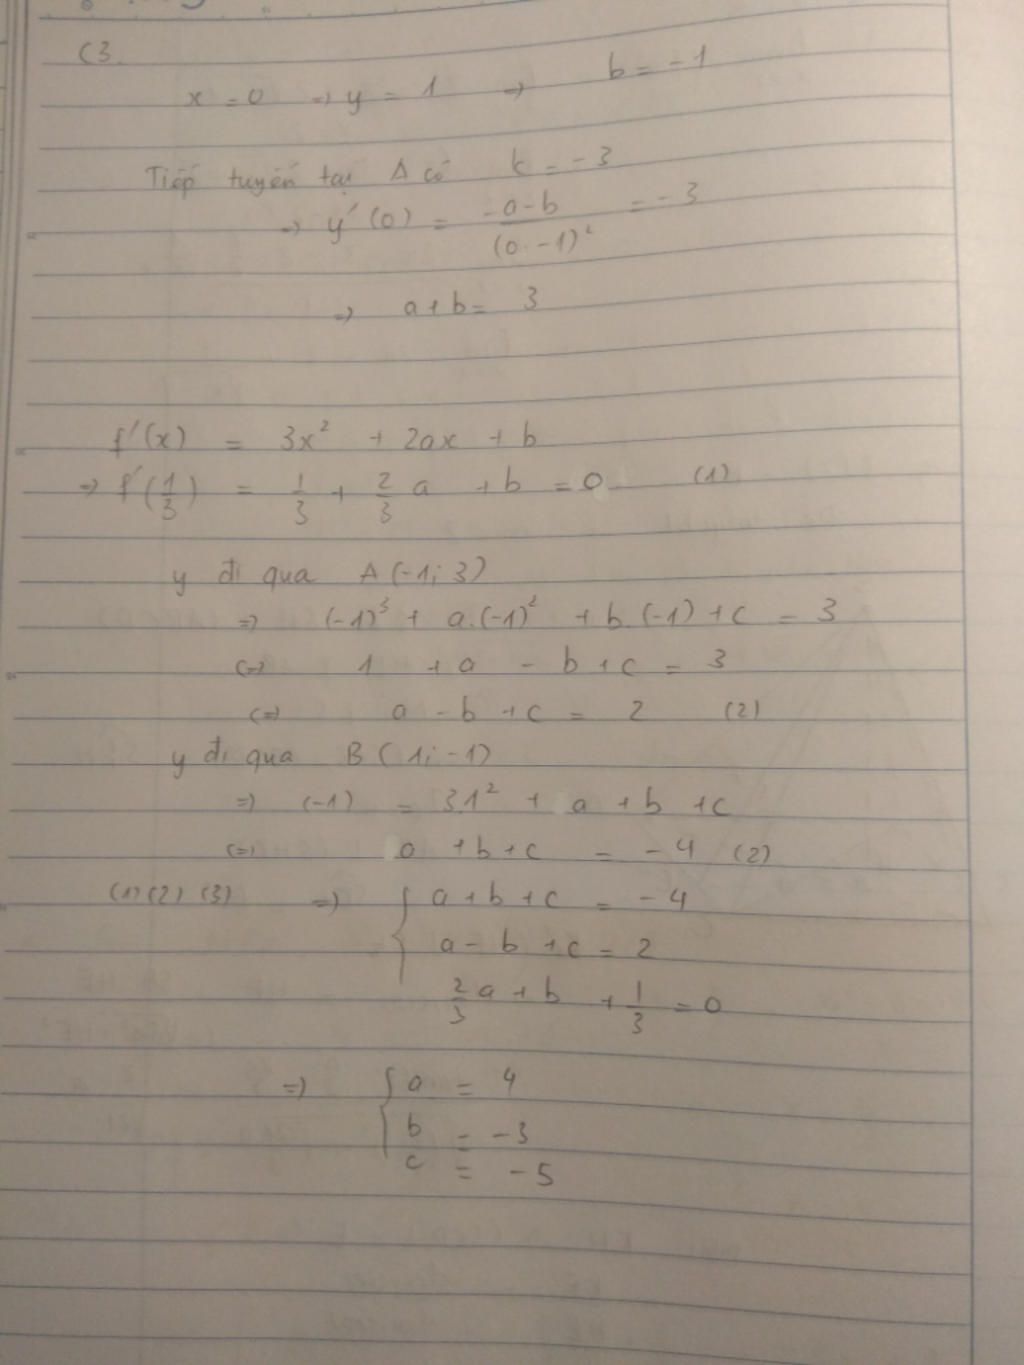 C3.
x = 0 => y = 1 => b = -1
Tiếp tuyến tại A có k = -3
=> y'(0) = \frac{-a-b}{(0.-1)^2} = -3
=> a + b = 3
f'(x) = 3x^2 + 2ax + b
=> f'(\frac{1}{3}) = \frac{1}{3} + \frac{2}{3}a + b = 0 (1)
y đi qua A (-1; 3)
=> (-1)^3 + a.(-1)^2 + b.(-1) + c = 3
<=> 1 + a - b + c = 3
<=> a - b + c = 2 (2)
y đi qua B (1; -1)
=> (-1) = 3.1^2 + a + b + c
<=> a + b + c = -4 (2)
(1) (2) (3) => { a + b + c = -4
a - b + c = 2
\frac{2}{3}a + b + \frac{1}{3} = 0
=> { a = 4
b = -3
c = -5